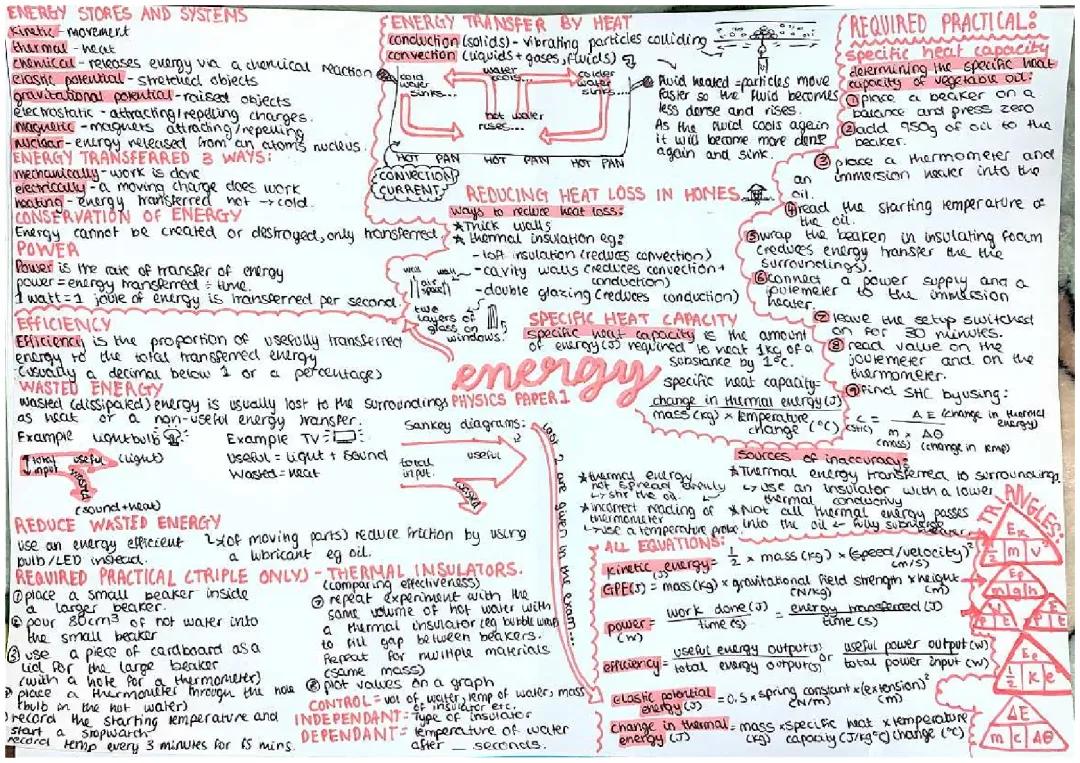 ENERGY STORES AND SYSTEMS
kinetic - movement
thermal - heat
chemical - releases energy via a chemical reaction
elastic potential - stretched objects
gravitational potential - raised objects
electrostatic - attracting/repelling charges.
magnetic - magnets attracting/repelling
nuclear - energy released from an atoms nucleus.
ENERGY TRANSFERRED 3 WAYS:
mechanically - work is done
electrically - a moving charge does work
heating - energy transferred hot → cold.
CONSERVATION OF ENERGY
Energy cannot be created or destroyed, only transferred
POWER
Power is the rate of transfer of energy
power = energy transferred ÷ time.
1 watt = 1 joule of energy is transferred per second
EFFICIENCY
Efficiency is the proportion of usefully transferred
energy to the total transferred energy
(usually a decimal below 1 or a percentage)
WASTED ENERGY
wasted (dissipated) energy is usually lost to the surroundings
as heat or a non-useful energy transfer.
Example lightbulb
total input
useful (light)
wasted
(sound + heat)
Example TV =
Useful = Light + Sound
Wasted = Heat
Sankey diagrams:
total input
useful
wasted
REDUCE WASTED ENERGY
use an energy efficient
bulb/LED instead.
(of moving parts) reduce friction by using
a lubricant eg oil.
REQUIRED PRACTICAL (TRIPLE ONLY) - THERMAL INSULATORS.
(comparing effectiveness)
① place a small beaker inside
a larger beaker.
② pour 80cm³ of hot water into
the small beaker
③ use a piece of cardboard as a
lid for the large beaker
(with a hole for a thermometer)
place a thermometer through the hole
(bulb in the hot water)
record the starting temperature and
start a stopwatch
record temp every 3 minutes for 15 mins.
⑦ repeat experiment with the
same volume of hot water with
a thermal insulator (eg bubble wrap
to fill gap between beakers.
Repeat for multiple materials
(same mass)
⑧ plot values on a graph
CONTROL = vol of water, temp of water, mass
of insulator etc.
INDEPENDANT = Type of insulator
DEPENDANT = temperature of water
after __ seconds.
ENERGY TRANSFER BY HEAT
conduction (solids) - vibrating particles colliding
convection (liquids + gases, fluids)
cold water sinks...
water cools...
colder water sinks...
hot water rises...
HOT PAN HOT PAN HOT PAN
CONVECTION CURRENT
Fluid heated = particles move
faster so the fluid becomes
less dense and rises.
As the fluid cools again
it will become more dense
again and sink.
REDUCING HEAT LOSS IN HOMES
Ways to reduce heat loss:
* Thick walls
* thermal insulation eg:
- loft insulation (reduces convection)
- cavity walls (reduces convection +
conduction)
- double glazing (reduces conduction)
wall wall
air space
two
layers of
glass on
windows.
SPECIFIC HEAT CAPACITY
specific heat capacity is the amount
of energy (J) required to heat 1kg of a
substance by 1°C.
specific heat capacity=
change in thermal energy (J)
mass (kg) × temperature
change (°C)
energy
PHYSICS PAPER 1
REQUIRED PRACTICAL:
specific heat capacity
determining the specific heat
capacity of vegetable oil:
① place a beaker on a
balance and press zero
② add 950g of oil to the
beaker.
③ place a thermometer and
an immersion heater into the
oil.
④ read the starting temperature of
the oil.
⑤ wrap the beaker in insulating foam
(reduces energy transfer the the
surroundings).
⑥ connect a power supply and a
joulemeter to the immersion
heater.
⑦ leave the setup switched
on for 30 minutes.
⑧ read value on the
joulemeter and on the
thermometer.
⑨ find SHC by using:
c = ΔE (change in thermal energy)
(SHC) m × Δθ
(mass) (change in temp)
sources of inaccuracy:
* thermal energy
not spread evenly
↳ stir the oil.
* incorrect reading of
thermometer
↳ use a temperature probe
* Thermal energy transferred to surroundings.
↳ use an insulator with a lower
thermal conductivity
* Not all thermal energy passes
into the oil ↳ fully submerge
heater
last 2 are given in the exam...
ALL EQUATIONS:
kinetic energy = 1/2 × mass (kg) × (speed/velocity)²
(J) (m/s)
GPE (J) = mass (kg) × gravitational field strength × height
(N/kg) (m)
power = work done (J) / time (s) = energy transferred (J) / time (s)
(W)
efficiency = useful energy output (J) / total energy output (J) or useful power output (W) / total power input (W)
elastic potential = 0.5 × spring constant × (extension)²
energy (J) (N/m) (m)
change in thermal = mass × specific heat × temperature
energy (J) (kg) capacity (J/kg°C) change (°C)
TRIANGLES:
Ek
1/2 m v²
Ep
m g h
W
P t
E
P t
Ee
1/2 k e²
ΔE
m c Δθ